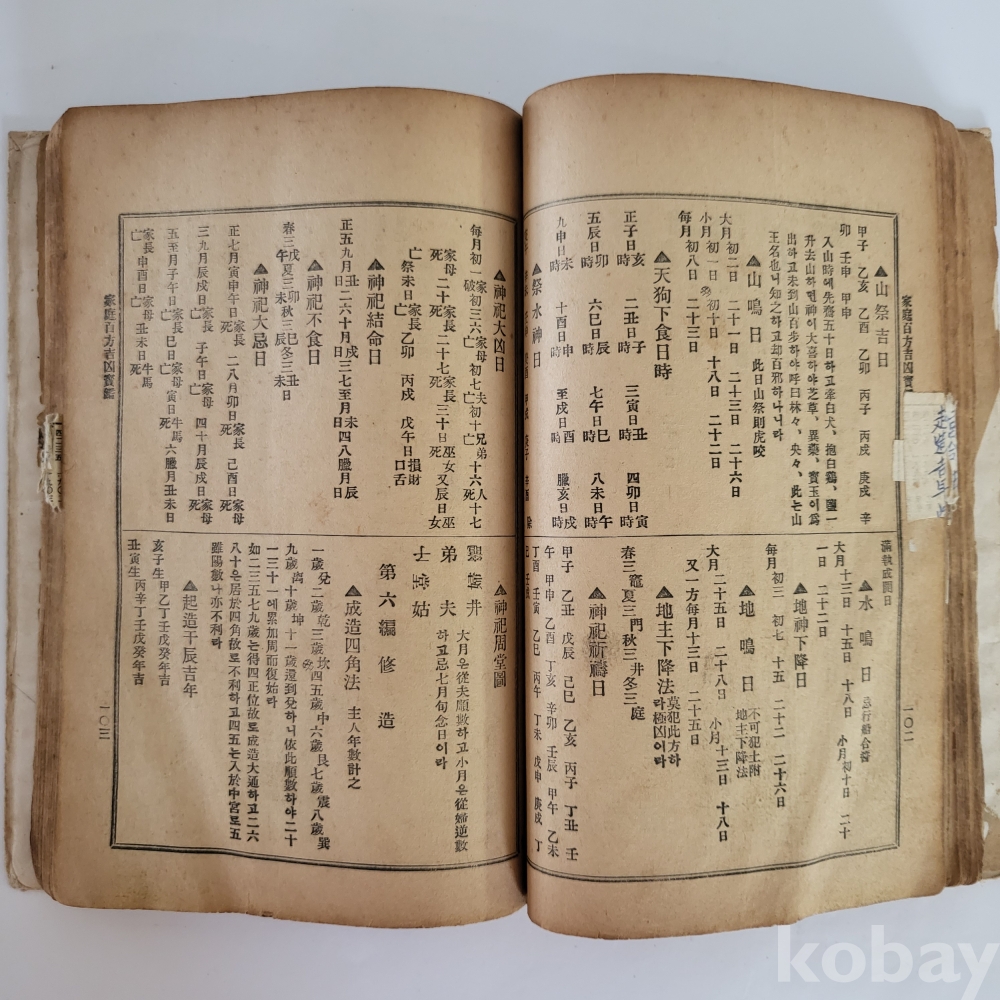 家庭百方吉凶寶
▲山祭吉日
甲子 乙亥 乙酉 乙卯 丙子 丙戌 庚戌 辛
卯 壬申 甲申
入山時에先齋五十日하고牽白犬、抱白鷄、鹽一
升去山하면神이大喜하야芝草、異藥、寶玉이爲
出하고未到山百步하야呼曰林々、央々、此는山
王名也니知之하고却百邪하나니라
▲山鳴日 此日山祭則虎咬
大月 初二日 二十一日 二十三日 二十六日
小月 初一日 初十日 十八日 二十二日
每月 初八日 二十三日
▲天狗下食日時
正子日亥時 二丑日子時 三寅日丑時 四卯日寅時
五辰日卯時 六巳日辰時 七午日巳時 八未日午時
九申日未時 十酉日申時 至戌日酉時 臘亥日戌時
▲祭水神日
滿執成開日
▲水鳴日 忌行船合醬
大月 十三日 十五日 十八日 小月初十日 二十
一日 二十二日
▲地神下降日
每月初三 初七 十五 二十二 二十六日
▲地鳴日 不可犯土附地主下降法
大月 二十五日 二十八日 小月 十三日 十八日
又一方每月十三日 二十五日
▲地主下降法 莫犯此方하라極凶이라
春三竈夏三門秋三井冬三庭
▲神祀祈禱日
甲子 乙丑 戊辰 己巳 乙亥 丙子 丁丑 壬
午 壬午 丁亥 辛卯 壬辰 甲午 乙未
丁酉 壬寅 乙巳 丙午 丁未 戊申 庚戌 丁
一〇二
▲神祀大凶日
每月初一破初三六家母死初七夫亡初十兄弟亡十六人死十七
家母死二十家長死三十日巫女死又辰日巫女
亡祭未日家長亡乙卯 丙戌 戊午日損財口舌
▲神祀結命日
正五九月丑日二六十月戌日三七至月未日四八臘月辰日
▲神祀不食日
春三戊午夏三卯未秋三巳辰冬三丑未日
▲神祀大忌日
正七月寅申午日家長死二八月卯日家長死己酉日家母死
三九月辰戌日家長亡子午日家母亡四十月辰戌日家母死
五至月子午日家長亡巳日家母亡寅日牛馬死六臘月丑未日
家長亡申酉日家母亡丑未日牛馬死
▲神祀周堂圖
竈 井
弟 夫
士 堂 姑
大月은從夫順數하고小月은從婦逆數
하고忌七月旬念日이라
第六編 修造
▲成造四角法 主人年數計之
一歲兌二歲乾三歲坎四五歲中六歲艮七歲震八歲巽
九歲离十歲坤十一歲還到兌하니依此順數하야二十
一三十一에累加周而復始라
如二三五七九歲는得四正位故로成造大通하고二六
八十은居於四角故로不利하고四五는入於中宮로五
雖陽數나亦不利라
▲起造干辰吉年
亥子生甲乙丁壬戊癸年吉
丑寅生丙辛丁壬戊癸年吉
一〇三
家庭百方吉凶寶鑑
kobay